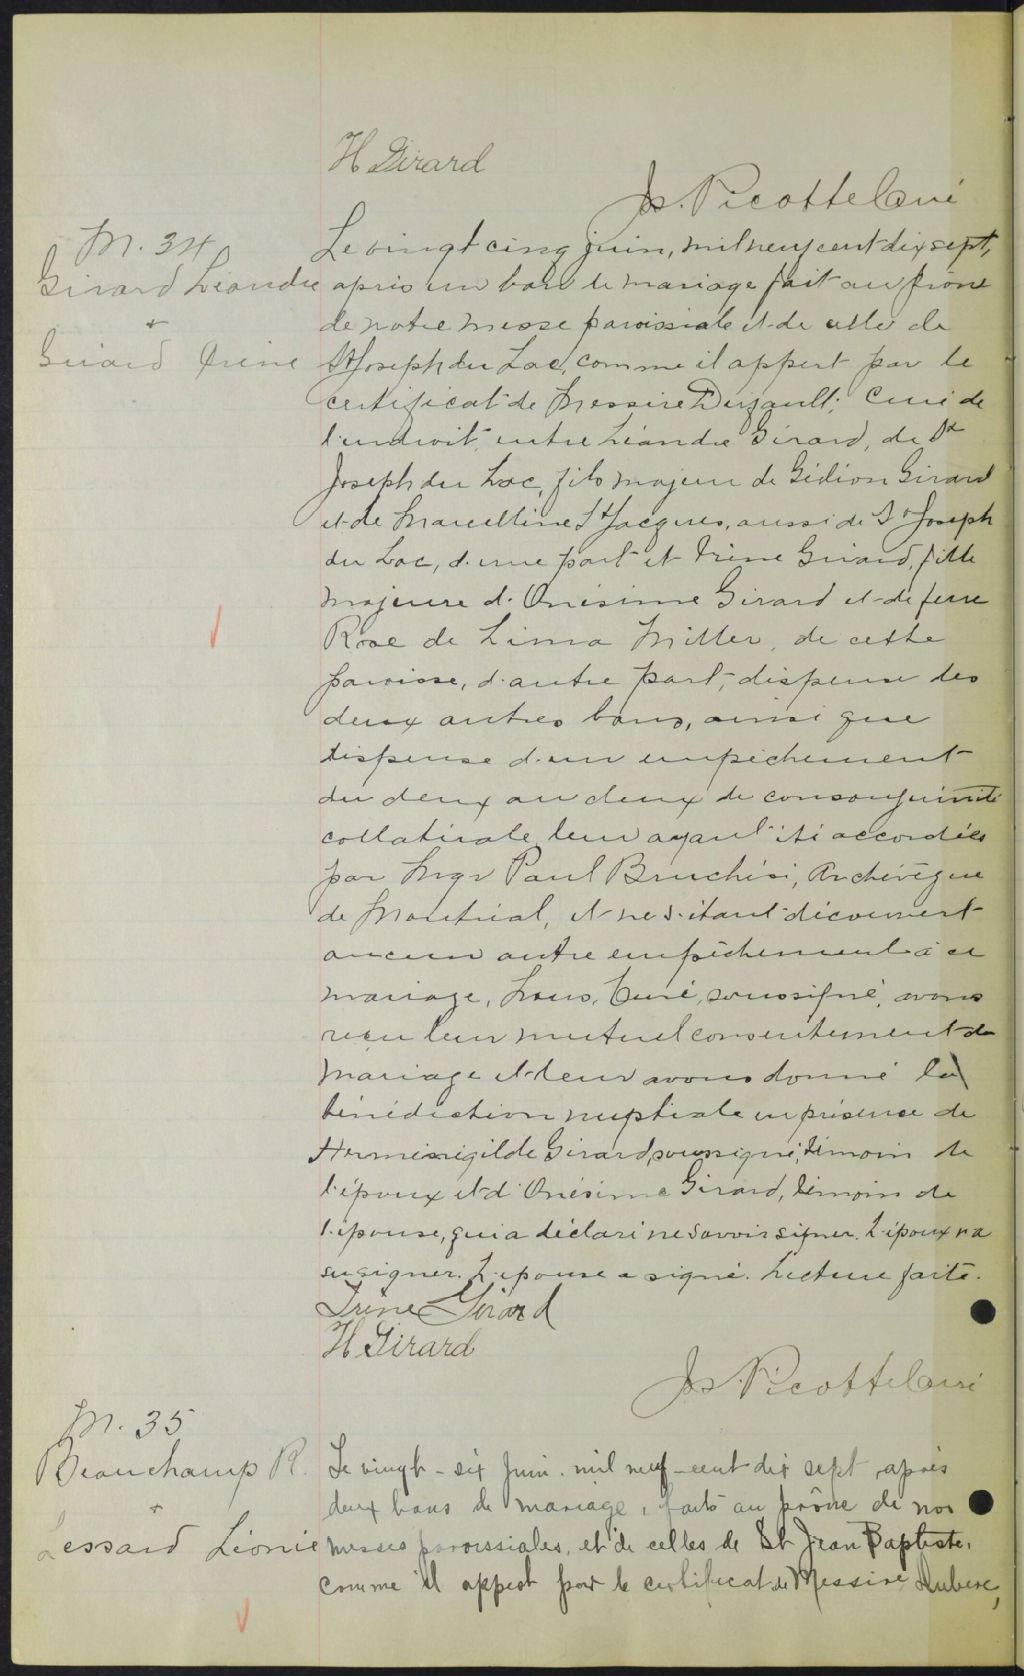 H Girard
Js. Picotte Curé
M. 34
Girard Léandre
+
Girard Irène
Le vingt cinq juin, mil neuf cent dix sept,
après un ban de mariage fait au prône
de notre messe paroissiale et de celle de
St Joseph du Lac, comme il appert par le
certificat de Messire Dugault, Curé de
l'endroit, entre Léandre Girard, de St
Joseph du Lac, fils majeur de Gédéon Girard
et de Marcelline St Jacques, aussi de St Joseph
du Lac, d'une part et Irène Girard, fille
majeure d'Onésime Girard et de feue
Rose de Lima Miller, de cette
paroisse, d'autre part, dispense des
deux autres bans, ainsi que
dispense d'un empêchement
du deux au deux de consanguinité
collatérale leur ayant été accordées
par Mgr Paul Bruchési, Archevêque
de Montréal, et ne s'étant découvert
aucun autre empêchement à ce
mariage, Nous, Curé, soussigné, avons
reçu leur mutuel consentement de
mariage et leur avons donné la
bénédiction nuptiale en présence de
Herménégilde Girard, soussigné, témoin de
l'époux et d'Onésime Girard, témoin de
l'épouse, qui a déclaré ne savoir signer. L'époux n'a
su signer. L'épouse a signé. Lecture faite.
Irène Girard
H Girard
Js. Picotte Curé
M. 35
Beauchamp R.
+
Lessard Léonie
Le vingt-six juin mil neuf-cent dix sept après
deux bans de mariage, faits au prône de nos
messes paroissiales, et de celles de St Jean Baptiste,
comme il appert par le certificat de Messire Dubuc,